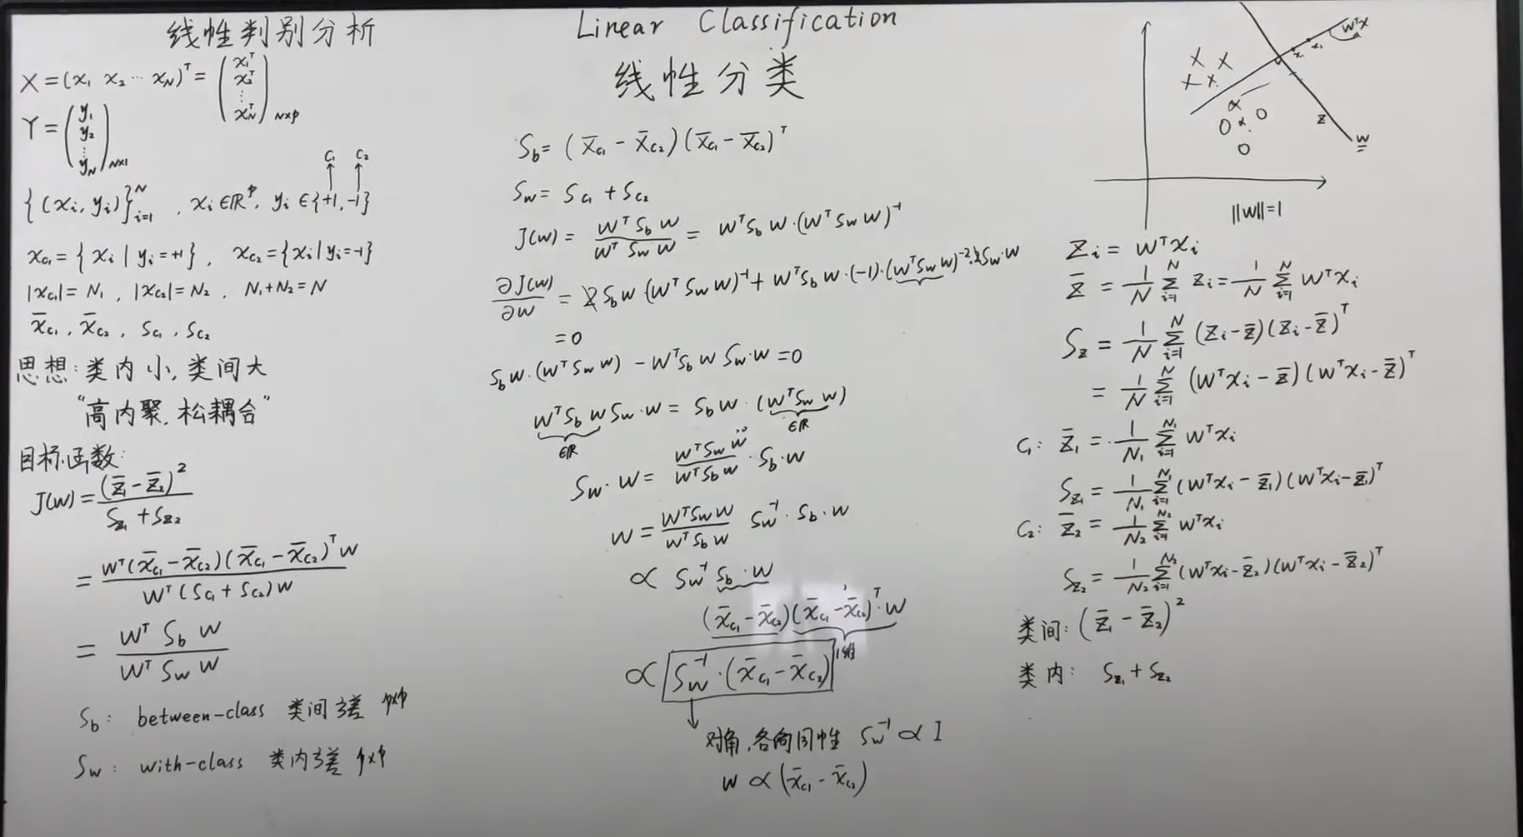 线性判别分析
X = (x₁ x₂ ⋯ x_N)ᵀ = (x₁ᵀ x₂ᵀ ⋮ x_Nᵀ)_{N×p}
Y = (y₁ y₂ ⋮ y_N)_{N×1}
C₁ C₂
{(xᵢ, yᵢ)}ᵢ₌₁ᴺ , xᵢ ∈ ℝᵖ, yᵢ ∈ {+1, -1}
x_{C₁} = {xᵢ | yᵢ = +1}, x_{C₂} = {xᵢ | yᵢ = -1}
|x_{C₁}| = N₁, |x_{C₂}| = N₂, N₁+N₂ = N
x̄_{C₁}, x̄_{C₂}, S_{C₁}, S_{C₂}
思想: 类内小, 类间大
“高内聚, 松耦合”
目标函数:
J(w) = (z̄₁ - z̄₂)² / (S_{z₁} + S_{z₂})
= wᵀ(x̄_{C₁} - x̄_{C₂})(x̄_{C₁} - x̄_{C₂})ᵀw / wᵀ(S_{C₁} + S_{C₂})w
= wᵀ S_b w / wᵀ S_w w
S_b: between-class 类间方差 p×p
S_w: with-class 类内方差 p×p
Linear Classification
线性分类
S_b = (x̄_{C₁} - x̄_{C₂})(x̄_{C₁} - x̄_{C₂})ᵀ
S_w = S_{C₁} + S_{C₂}
J(w) = wᵀ S_b w / wᵀ S_w w = wᵀ S_b w · (wᵀ S_w w)⁻¹
∂J(w)/∂w = 2 S_b w (wᵀ S_w w)⁻¹ + wᵀ S_b w · (-1) · (wᵀ S_w w)⁻² · 2 S_w · w
= 0
S_b w · (wᵀ S_w w) - wᵀ S_b w S_w · w = 0
wᵀ S_b w S_w · w = S_b w · (wᵀ S_w w)
∈ℝ ∈ℝ
S_w · w = wᵀ S_w w / wᵀ S_b w · S_b · w
w = wᵀ S_w w / wᵀ S_b w S_w⁻¹ · S_b · w
∝ S_w⁻¹ S_b · w
(x̄_{C₁} - x̄_{C₂})(x̄_{C₁} - x̄_{C₂})ᵀ · w
1维
∝ S_w⁻¹ · (x̄_{C₁} - x̄_{C₂})
对角, 各向同性 S_w⁻¹ ∝ I
w ∝ (x̄_{C₁} - x̄_{C₂})
wᵀx
z
w
‖w‖=1
zᵢ = wᵀxᵢ
z̄ = 1/N Σᵢ₌₁ᴺ zᵢ = 1/N Σᵢ₌₁ᴺ wᵀxᵢ
S_z = 1/N Σᵢ₌₁ᴺ (zᵢ - z̄)(zᵢ - z̄)ᵀ
= 1/N Σᵢ₌₁ᴺ (wᵀxᵢ - z̄)(wᵀxᵢ - z̄)ᵀ
C₁: z̄₁ = 1/N₁ Σᵢ₌₁^{N₁} wᵀxᵢ
S_{z₁} = 1/N₁ Σᵢ₌₁^{N₁} (wᵀxᵢ - z̄₁)(wᵀxᵢ - z̄₁)ᵀ
C₂: z̄₂ = 1/N₂ Σᵢ₌₁^{N₂} wᵀxᵢ
S_{z₂} = 1/N₂ Σᵢ₌₁^{N₂} (wᵀxᵢ - z̄₂)(wᵀxᵢ - z̄₂)ᵀ
类间: (z̄₁ - z̄₂)²
类内: S_{z₁} + S_{z₂}